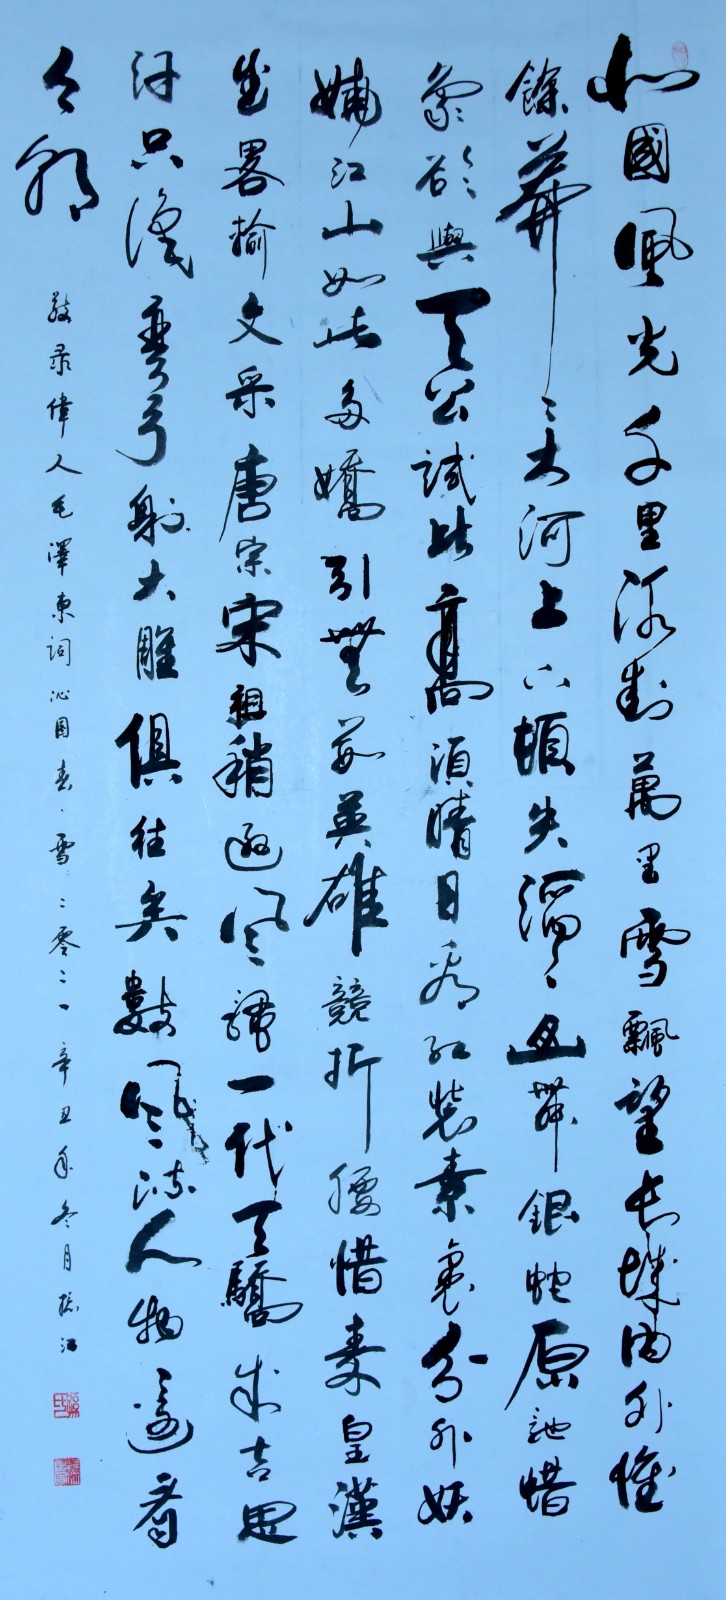 北國風光千里冰封萬里雪飄望長城內外惟
餘莽〻大河上下頓失滔〻山舞銀蛇原馳蜡
象欲與天公試比高須晴日看紅裝素裹分外妖
嬈江山如此多嬌引無數英雄競折腰惜秦皇漢
武畧輸文采唐宗宋祖稍遜風騷一代天驕成吉思
汗只識彎弓射大雕俱往矣數風流人物還看
今朝
敬录偉人毛澤東詞沁园春·雪二零二一辛丑年冬月振江